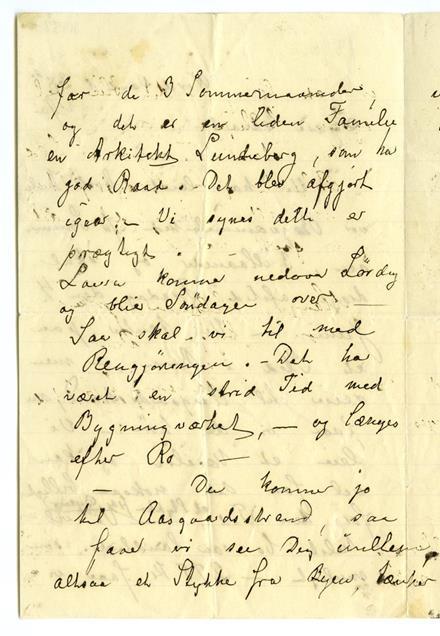 for de 3 Sommermaaneder,
og det er en liden Familie
en Arkitekt Lundeberg, som ha
god Raad. - Det blev afgjort
igaar. - Vi synes dette er
prægtigt. -
Laura komme nedover Lördag
og blir Söndagen over -
Saa skal vi til med
Rengjöringen. - Det ha
været en strid Tid med
Bygningværket, - og længes
efter Ro -
- Du komme jo
til Aasgaardsstrand, saa
faar vi see Dig imellem,
altsaa et Stykke fra Byen,